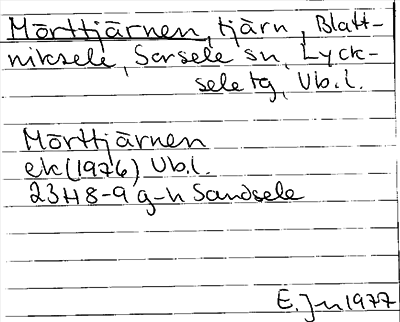 Mörttjärnen, tjärn, Blatt-
niksele, Sorsele sn, Lyck-
sele tg, Vb.l.
Mörttjärnen
ek (1976) Vb.l.
23H 8-9 g-h Sandsele
E. J-n 1977